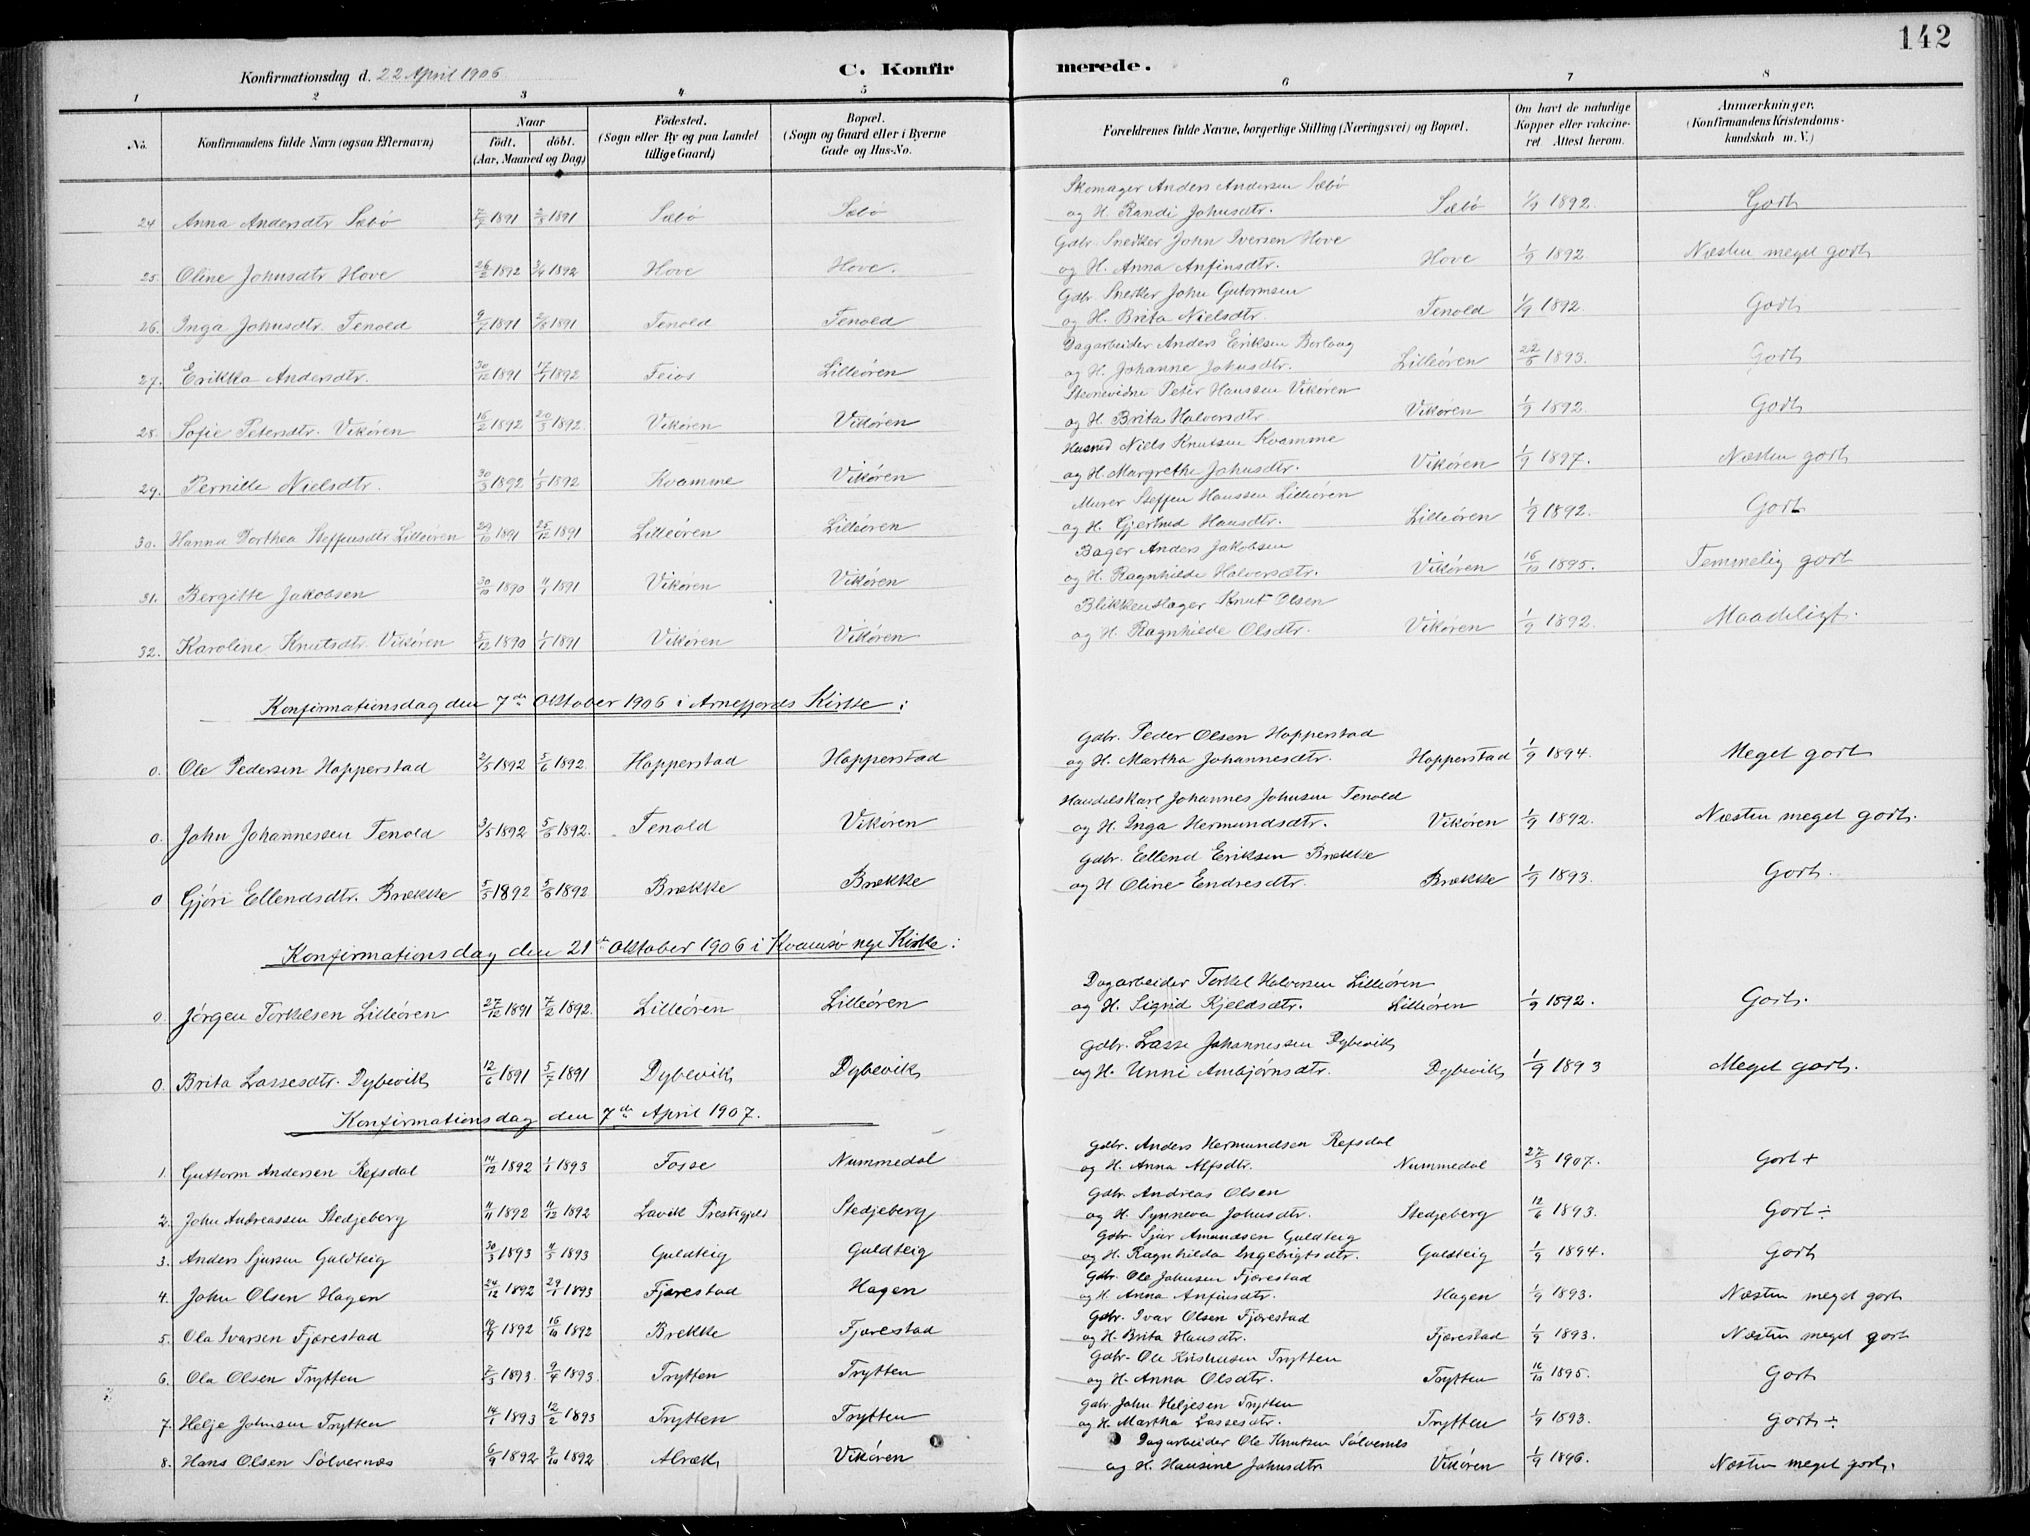 142
Konfirmationsdag d. 22 April 1906. C. Konfirmerede.
1 2 3 4 5 6 7 8
No. Konfirmandens fulde Navn (ogsaa Efternavn) Naar født. døbt. (Aar, Maaned og Dag) Fødested. (Sogn eller By og paa Landet tillige Gaard) Bopæl. (Sogn og Gaard eller i Byerne Gade og Hus-No. Forældrenes fulde Navne, borgerlige Stilling (Næringsvei) og Bopæl. Om havt de naturlige Kopper eller vakcineret Attest herom. Anmærkninger. (Konfirmandens Kristendomskundskab m. V.)
Skomager Anders Andersen Sæbø
24 Anna Andersdtr Sæbø 7/7 1891 2/8 1891 Sæbø Sæbø og H. Randi Johnsdtr. Sæbø 1/9 1892. Godt
Gdbr. Snedker John Iversen Hove
25. Oline Johnsdtr Hove 26/2 1892 3/4 1892 Hove Hove. og H. Anna Anfinsdtr. Hove 1/9 1892 Næsten meget godt
Gdbr. Snedker John Gutormsen
26. Inga Johnsdtr. Tenold 9/7 1891 2/8 1891 Tenold Tenold og H. Brita Nielsdtr. Tenold 1/9 1892. Godt
Dagarbeider Anders Eriksen Borlaug
27. Erikka Andersdtr. 30/12 1891 17/1 1892 Feios Lilleören og H. Johanne Johnsdtr. Lilleören 22/8 1893. Godt
Stevnevidne Peter Hanssen Vikören
28. Sofie Petersdtr. Vikören 16/2 1892 20/3 1892. Vikören Vikören og H. Brita Halversdtr. Vikören 1/9 1892. Godt
Husmd Niels Knutsen Kvamme
29. Pernille Nielsdtr. 30/3 1892 1/5 1892 Kvamme Vikören og H. Margrethe Johnsdtr. Vikören 1/9 1897. Næsten godt
Murer Steffen Hanssen Lilleören
30. Hanna Dorthea Steffensdtr Lilleören 29/10 1891 25/12 1891 Lilleören Lilleören og H. Gjertrud Hansdtr. Lilleören 1/9 1892. Godt
Bager Anders Jakobsen
31. Bergitte Jakobsen 30/10 1890 11/1 1891 Vikören Vikören og H. Ragnhilde Halversdtr. Vikören 16/10 1895. Temmelig godt
Blikkenslager Knut Olsen
32. Karoline Knutsdtr. Vikören 5/12 1890 1/1 1891 Vikören Vikören og H. Ragnhilde Olsdtr. Vikören 1/9 1892. Maadeligt.
Konfirmationsdag den 7de Oktober 1906 i Arnefjords Kirke:
Gdbr. Peder Olsen Hopperstad
0. Ole Pedersen Hopperstad 2/5 1892 5/6 1892. Hopperstad Hopperstad og H. Martha Johannesdtr. Hopperstad 1/9 1894. Meget godt
Handelskarl Johannes Johnsen Tenold
0. John Johannessen Tenold 3/5 1892 5/6 1892. Tenold Vikören og H. Inga Hermundsdtr. Vikören 1/9 1892. Næsten meget godt.
Gdbr. Ellend Eriksen Brække
0 Gjöri Ellendsdtr. Brække 5/5 1892 5/6 1892 Brække Brække og H Oline Endresdtr. Brække 1/9 1893. Godt.
Konfirmationsdag den 21de Oktober 1906 i Kvamsö nye Kirke:
Dagarbeider Torkel Halversen Lilleören
0. Jörgen Torkelsen Lilleören 27/12 1891 7/2 1892. Lilleören Lilleören og H. Sigrid Kjeldsdtr. Lilleören 1/9 1892. Godt.
Gdbr. Lasse Johannessen Dybevik
0. Brita Lassesdtr. Dybevik 12/6 1891 5/7 1891 Dybevik Dybevik og H. Unni Ambjörnsdtr. Dybevik 1/9 1893 Meget godt.
Konfirmationsdag den 7de April 1907.
Gdbr. Anders Hermundsen Refsdal
1. Guttorm Andersen Refsdal 14/12 1892 1/1 1893 Fosse Nummedal og H. Anna Alfsdtr. Nummedal 27/3 1907. Godt +
Gdbr. Andreas Olsen
2. John Andreassen Stedjeberg 11/11 1892 11/12 1892 Lavik Prestegjeld Stedjeberg og H. Synneva Johnsdtr. Stedjeberg 12/6 1893. Godt ÷
Gdbr. Sjur Amundsen Guldteig
3. Anders Sjursen Guldteig 30/3 1893 11/5 1893 Guldteig Guldteig og H. Ragnhilda Ingebrigtsdtr. Guldteig 1/9 1894. Godt
Gdbr. Ole Johnsen Fjærestad
4. John Olsen Hagen 24/12 1892 29/1 1893 Fjærestad Hagen og H. Anna Anfinsdtr. Hagen 1/9 1893. Næsten meget godt
Gdbr. Ivar Olsen Fjærestad
5. Ola Ivarsen Fjærestad 14/9 1892 16/10 1892 Brekke Fjærestad og H. Brita Hansdtr. Fjærestad 1/9 1893. Næsten meget godt
Gdbr. Ole Trytten
6. Ola Olsen Trytten 7/3 1893. 9/4 1893. Trytten Trytten og H. Anna Olsdtr. Trytten 16/10 1895. Godt
Gdbr John Heljesen Trytten
7. Helje Johnsen Trytten 14/1 1893 12/2 1893 Trytten Trytten og H. Martha Lassesdtr. Trytten 1/9 1893. Godt ÷
Dagarbeider Ole Knutsen Sölvernes
8. Hans Olsen Sölvernæs 6/9 1892 2/10 1892 Alræk Vikören og H. Hansine Johnsdtr Vikören 1/9 1896. Næsten meget godt.